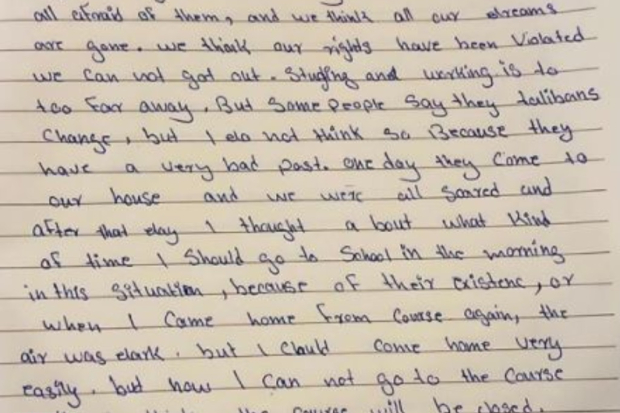 all afraid of them, and we think all our dreams
are gone. we think our rights have been Violated
we can not got out. Studing and working is to
too Far away. But Some People Say they talibans
Change, but I do not think So Because they
have a very bad past. one day they Come to
our house and we were all Scared and
after that day I thought a bout what Kind
of time I Should go to School in the morning
in this Situation, because of their existenc, or
when I Came home From Course again, the
air was dark. but I Could Come home very
easily. but now I Can not go to the Course
the course will be closed.